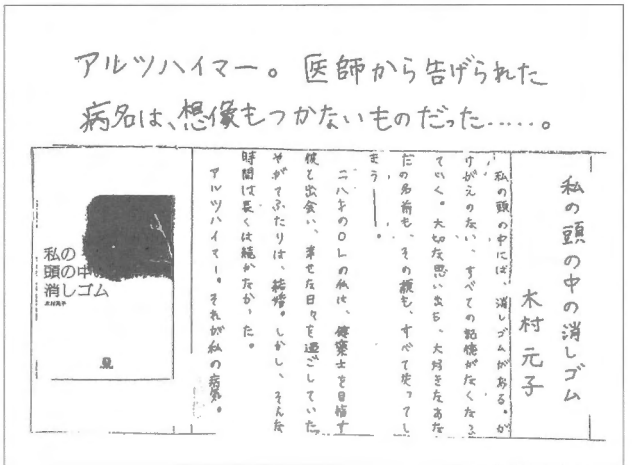 アルツハイマー。医師から告げられた
病名は、想像もつかないものだった……。
私の頭の中の消しゴム
木村元子
私の頭の中には、消しゴムがある。か
けがえのない、すべての記憶がなくなっ
ていく。大切な思い出も、大好きなあな
たの名前も、その顔も、すべて失ってし
まう――。
二八才のOLの私は、建築士を目指す
彼と出会い、幸せな日々を過ごしていた。
やがてふたりは、結婚。しかし、そんな
時間は長くは続かなかった。
アルツハイマー。それが私の病気。
私の
頭の中の
消しゴム
木村元子